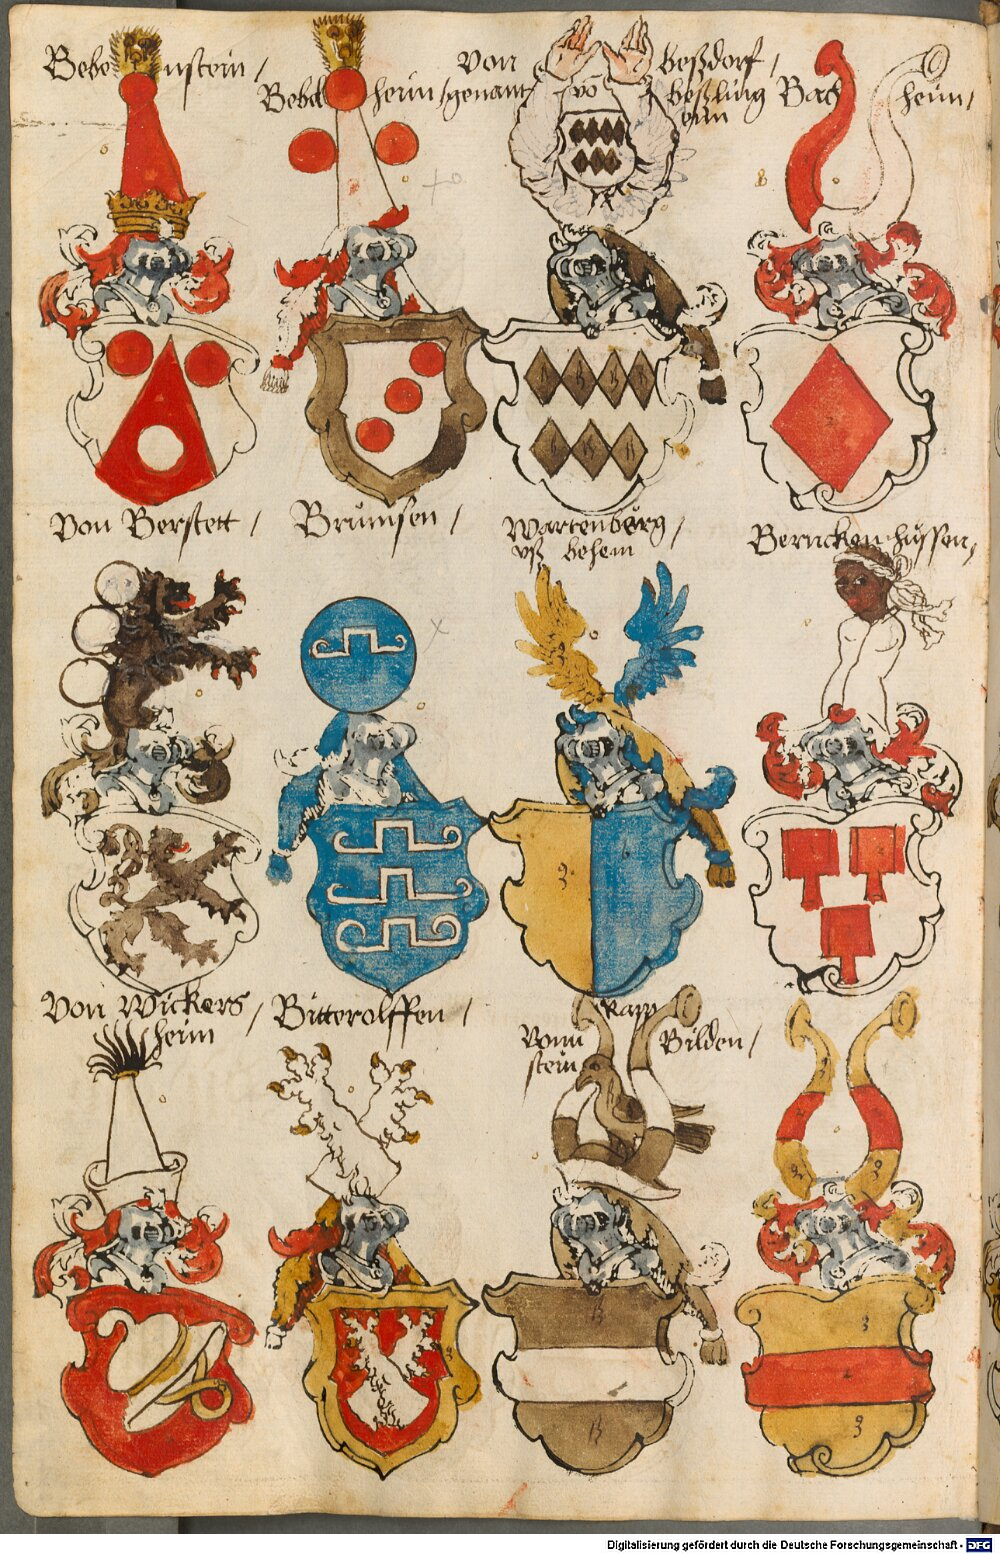 Bebenstein /
Bebelheim / genant
von beßdorf /
vō beßlüng
Bacheim /
Von Berstett /
Brümsen /
Wartenbürg /
vß behem
Berncken hüssen,
Von Wickers /
heim
Bitterolffen /
Rapp
Vonn Bilden /
stein
Digitalisierung gefördert durch die Deutsche Forschungsgemeinschaft - DFG